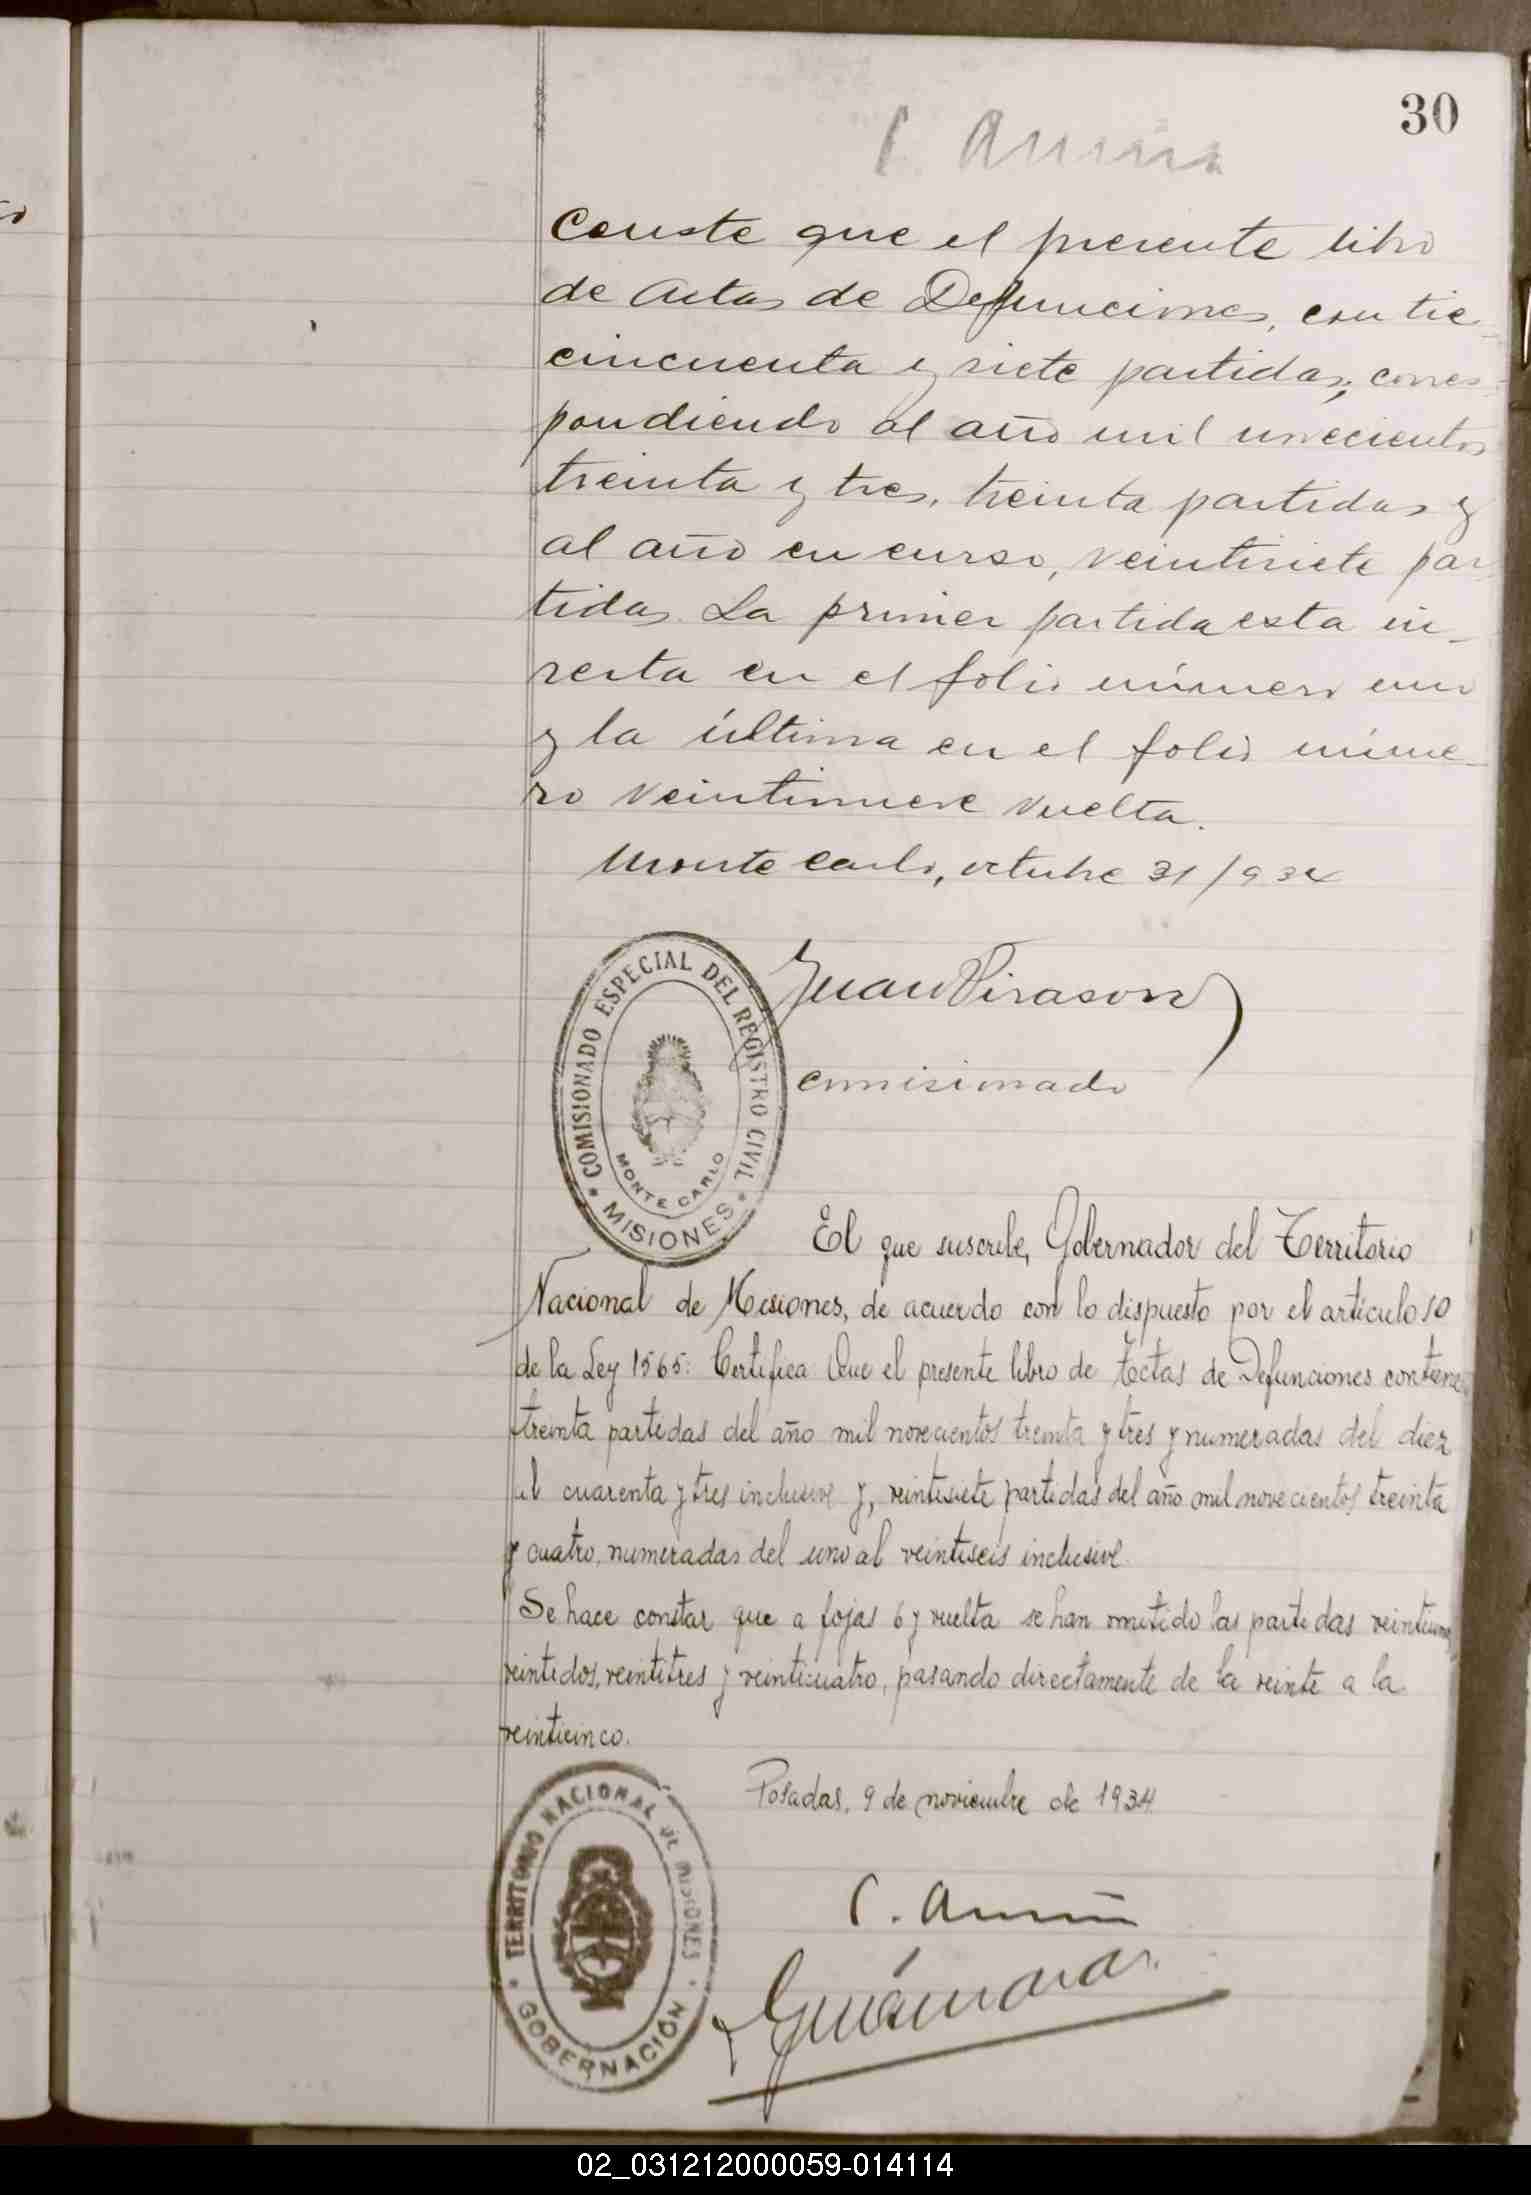 30
C. Acuña
Conste que el presente libro
de Actas de Defunciones, contie-
cincuenta y siete partidas, corres-
pondiendo al año mil novecientos
treinta y tres, treinta partidas y
al año en curso, veintisiete par-
tidas. La primer partida esta in-
serta en el folio número uno
y la última en el folio núme-
ro veintinueve vuelta.
Monte Carlo, octubre 31/934
Juan Pirason
comisionado
COMISIONADO ESPECIAL DEL REGISTRO CIVIL
MONTE CARLO
* MISIONES *
El que suscribe, Gobernador del Territorio
Nacional de Misiones, de acuerdo con lo dispuesto por el artículo 10
de la Ley 1565: Certifica Que el presente libro de Actas de Defunciones contiene
treinta partidas del año mil novecientos treinta y tres y numeradas del diez
al cuarenta y tres inclusive y, veintisiete partidas del año mil novecientos treinta
y cuatro, numeradas del uno al veintiseis inclusive.
Se hace constar que a fojas 6 y vuelta se han omitido las partidas veintiuno,
veintidos, veintitres y veinticuatro, pasando directamente de la veinte a la
veinticinco.
Posadas, 9 de noviembre de 1934
TERRITORIO NACIONAL DE MISIONES
* GOBERNACIÓN *
C. Acuña
02_031212000059-014114